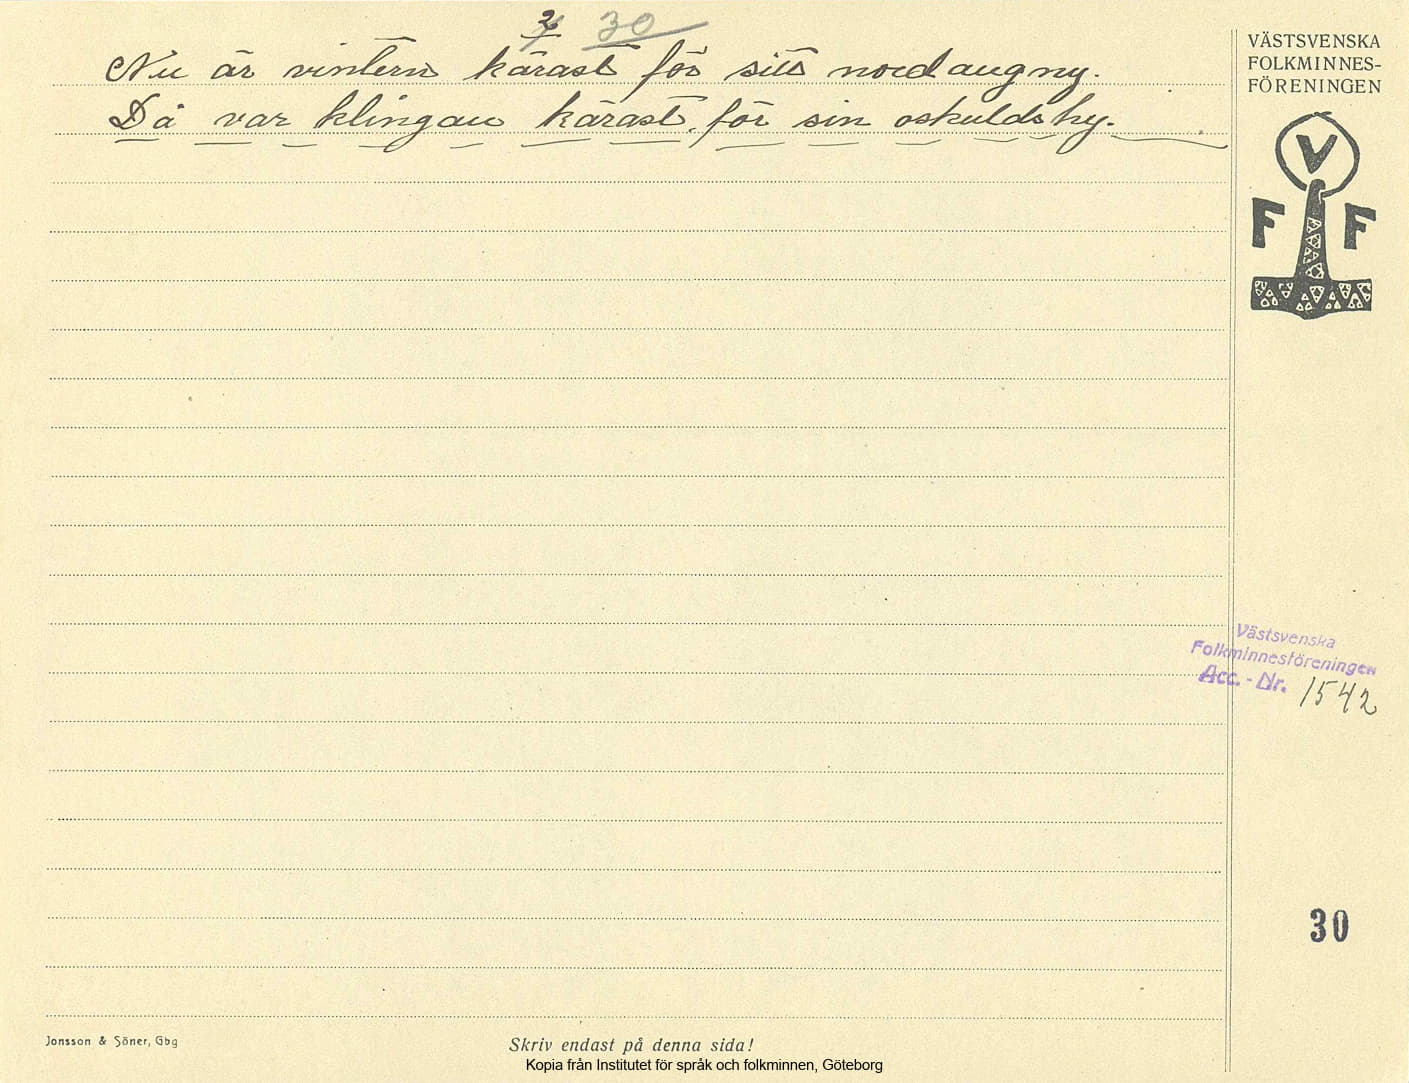 2 30
Nu är vintern kärast för sitt nord aug ny.
Då var klingan kärast, för sin oskulds hy.
VÄSTSVENSKA
FOLKMINNES-
FÖRENINGEN
V
F F
Västsvenska
Folkminnesföreningen
Acc. - Nr. 1542
30
Jonsson & Söner, Gbg
Skriv endast på denna sida!
Kopia från Institutet för språk och folkminnen, Göteborg